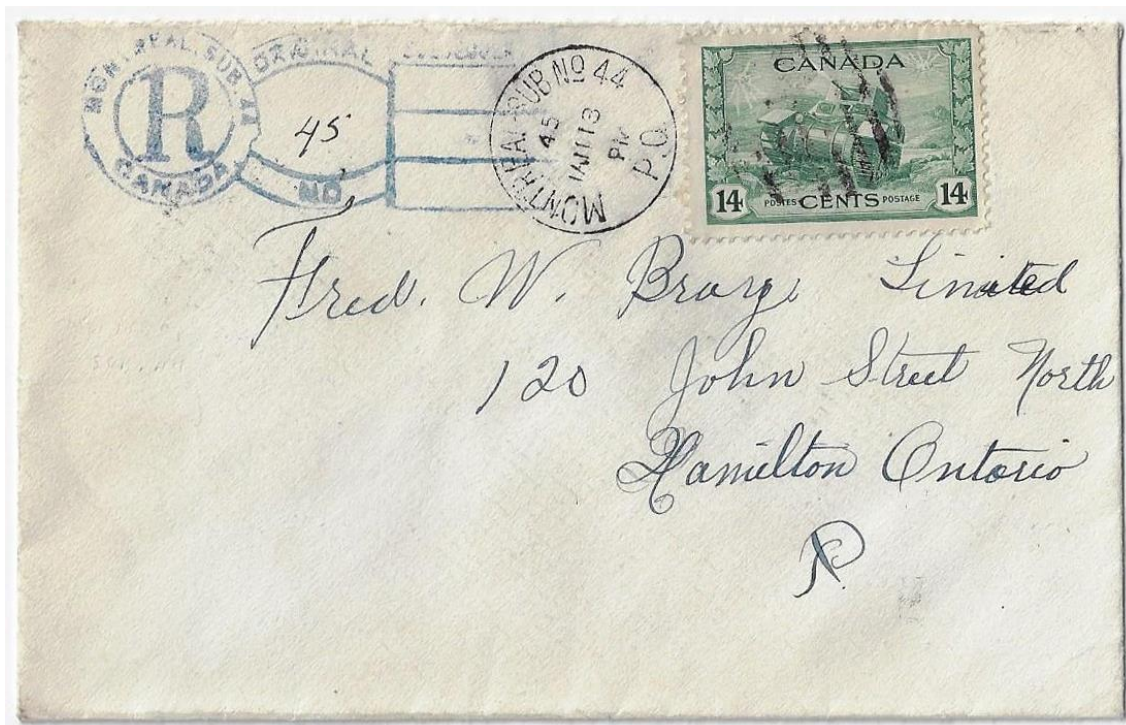 MONTREAL. SUB. 44
R
CANADA
ORIGINAL
45
NO
MONTREAL SUB NO 44
45
JAN 13
PM
P.O.
CANADA
14 POSTES CENTS POSTAGE 14
Fred. W. Limited
120 John Street North
Hamilton Ontario